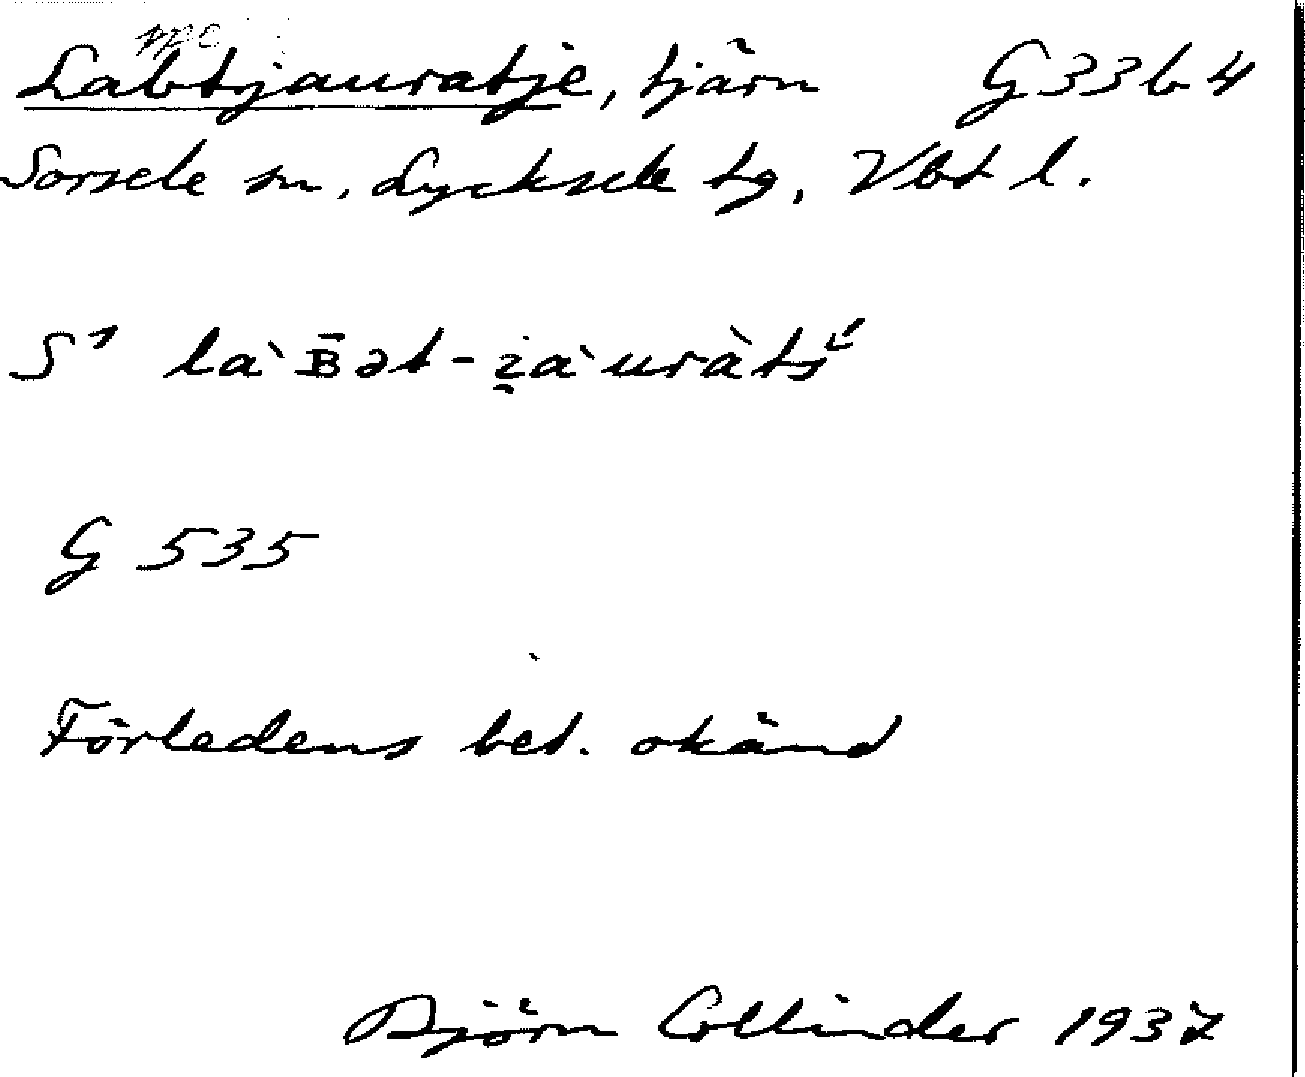 Labtjauratje, tjärn G33b4
Sorsele sn, Lycksele tg, Vbt l.
S¹ la`B̄ət-i̯a`uràts'
G 535
Förledens bet. okänd
Björn Collinder 1937